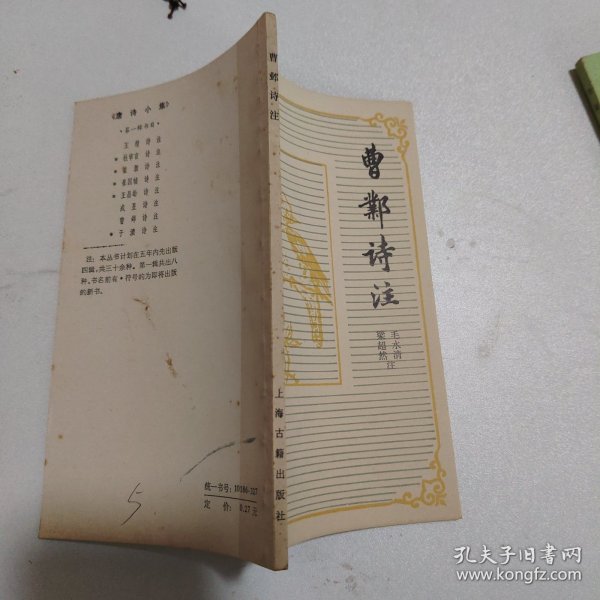 《唐诗小集》
·第一辑书目·
王勃诗注
*杜审言诗注
*崔颢诗注
*崔国辅诗注
*王昌龄诗注
戎昱诗注
曹邺诗注
*于濆诗注
注：本丛书计划在五年内先出版
四辑，共三十余种。第一辑共出八
种。书名前有*符号的为即将出版
的新书。
统一书号：10186·327
定价：0.27元
5
曹邺诗注
上海古籍出版社
曹鄴诗注
毛水清
梁超然
注
孔夫子旧书网
www.kongfz.com